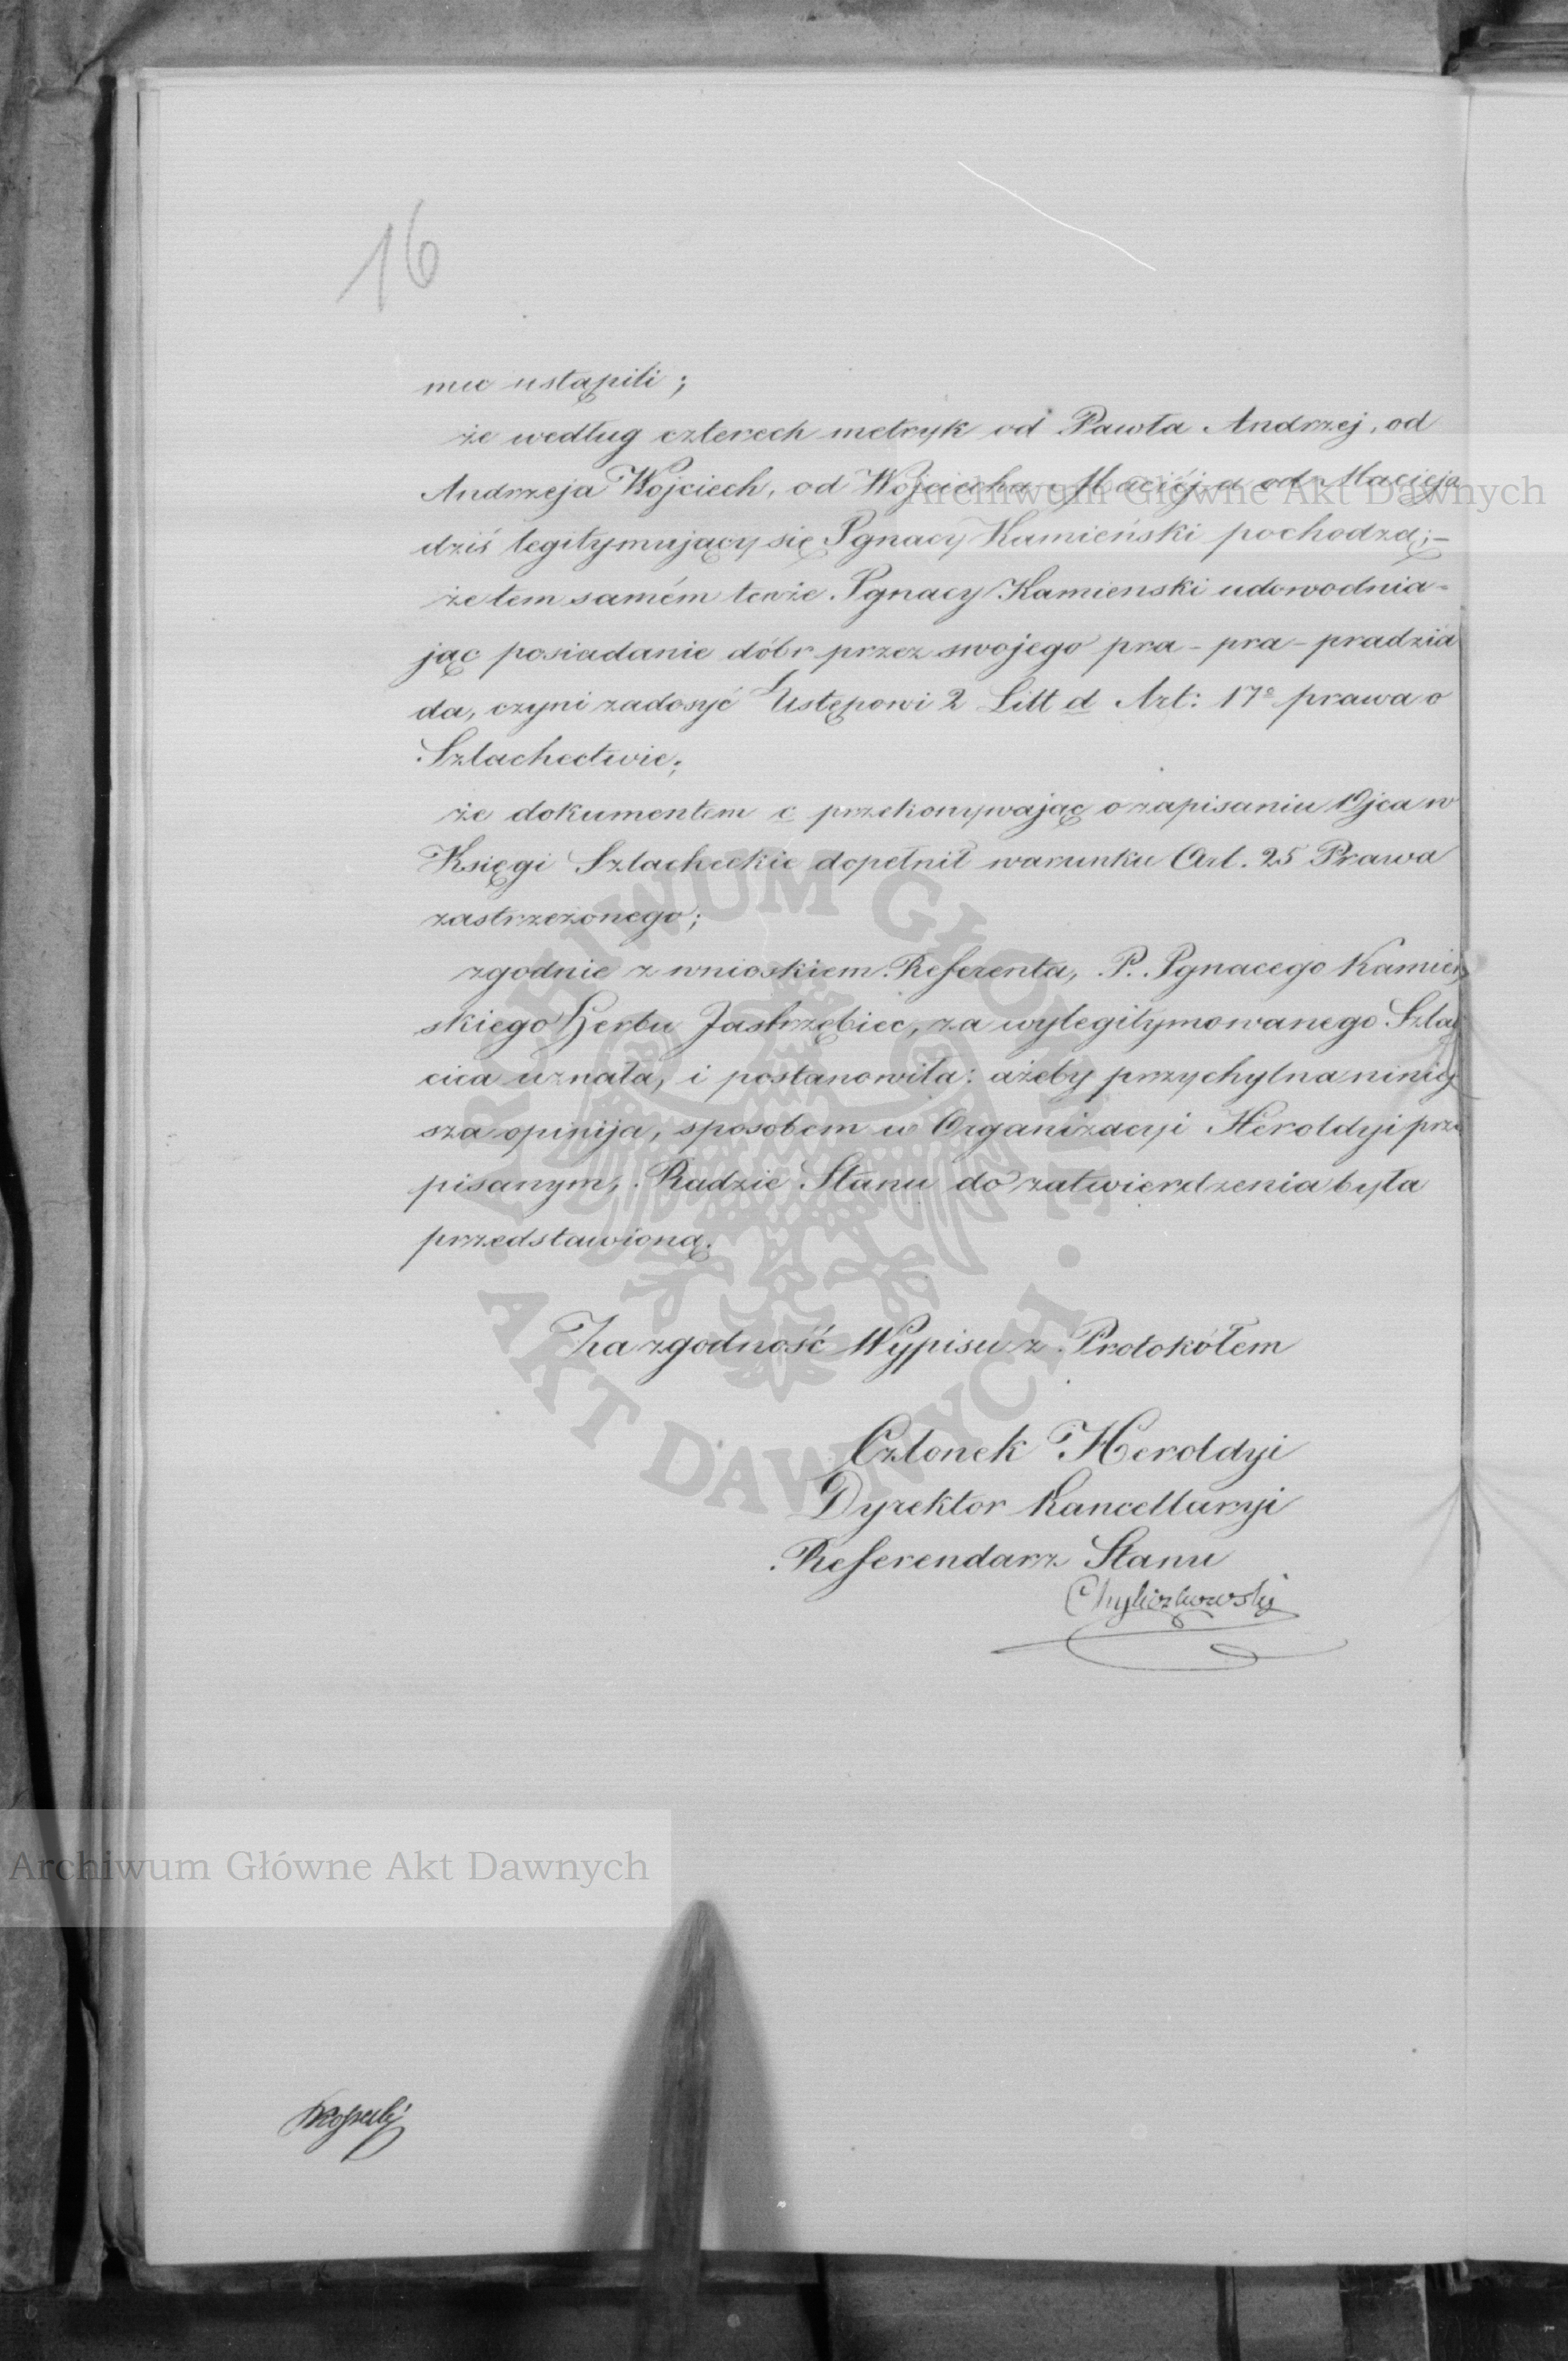 16
mu ustąpili;
że według czterech metryk od Pawła Andrzej, od
Andrzeja Wojciech, od Wojciecha Maciéj a od Macieja
dziś legitymujący się Ignacy Kamieński pochodzą;-
że tem samém tenże Ignacy Kamienski udowodnia-
jąc posiadanie dóbr przez swojego pra-pra-pradzia
da, czyni zadosyć Ustępowi 2 Litt d Art: 17º prawa o
Szlachectwie;
że dokumentem c przekonywając o zapisaniu Ojca w
Księgi Szlacheckie dopełnił warunku Art. 25 Prawa
zastrzeżonego;
zgodnie z wnioskiem Referenta, P. Ignacego Kamień
skiego Herbu Jastrzębiec, za wylegitymowanego Szla
cica uznała, i postanowiła: ażeby przychylna niniej
sza opinija, sposobem w Organizacyi Heroldyi prze
pisanym, Radzie Stanu do zatwierdzenia była
przedstawioną.
Za zgodność Wypisu z Protokółem
Członek Heroldyi
Dyrektor Kancellaryi
Referendarz Stanu
Chyliczkowski
Archiwum Główne Akt Dawnych
Archiwum Główne Akt Dawnych
ARCHIWUM GŁÓWNE AKT DAWNYCH